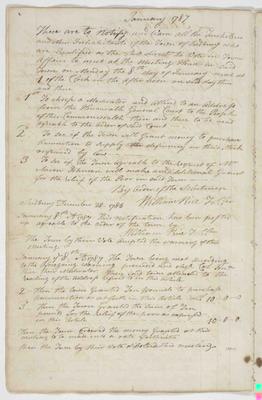 January 1787
These are to Notify and Warn all the Freeholders
and other Inhabitants of the Town of Sudbury who
are Qualified as the Law directs to Vote in Town
Affairs to meet at the Meeting House in said
Town on Monday the 8th day of January next at
1 of the Clock in the After Noon on said day for
and then
1st To choose a Moderator and attend to an Address
from the Honourable General Court to the People
of this Commonwealth then and there to be read
agreeable to the order of said Court
2 To see if the Town will grant money to purchase
Ammunition to Supply the deficiency in their Stock
required by Law
3 To see if the Town agreeable to the request of Mr
will make an additional Grant
for the relief of the Poor in said Town
By Order of the Selectmen
William Rice T. Clerk
Sudbury December 28. 1786
January 8th 1787 This Notification has been posted
up agreeable to the order of the town by
William Rice T. Clerk
The Town by their Vote accepted the warning of this
meeting
January ye 8th 1787 The Town being met
to the foregoing
their Moderator
reading of the address
2 Then the town Granted Ten Pounds to purchase
ammunition as set forth in this Article 10-0-0
3 Then the Town Granted the Sum of Ten
pounds for the relief of the poor as expressed
in this Article 10-0-0
Then the Town Ordered the money Granted at this
meeting to be made into a rate
then the Town by their Vote Dissolved this meeting